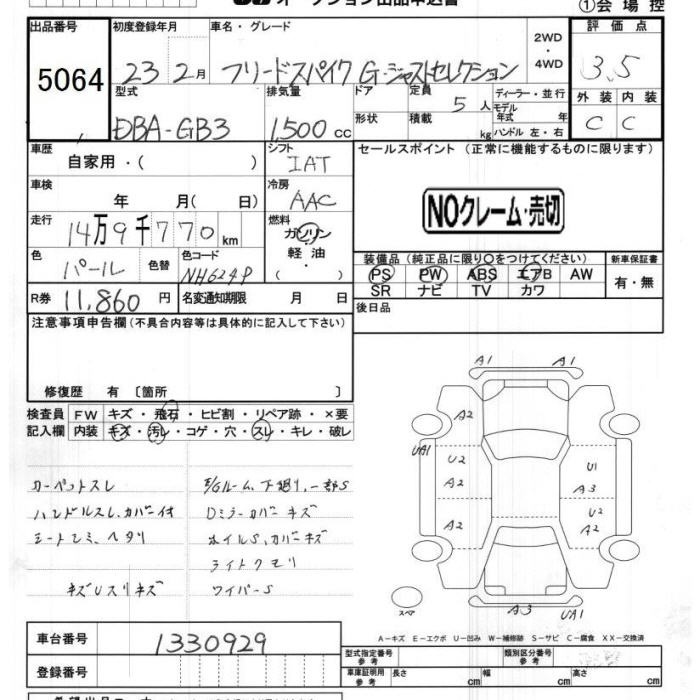 オークション出品申込書
①会場控
出品番号 初度登録年月 車名・グレード 2WD・4WD 評価点
5064 23 2月 フリードスパイク G・ジャストセレクション 3.5
型式 排気量 ドア 定員 5人 ディーラー・並行 外装 内装
DBA-GB3 1,500cc 形状 積載 kg モデル年式 年 ハンドル 左・右 C C
車歴 自家用・( ) シフト IAT セールスポイント (正常に機能するものに限ります)
車検 年 月( 日) 冷房 AAC
NOクレーム・売切
走行 14万9千770km 燃料 ガソリン 軽油・( )
色 パール 色替 色コード NH624P
装備品 (純正品に限り○をつけてください) 新車保証書
PS PW ABS エアB AW 有・無
SR ナビ TV カワ
R券 11,860円 名変通知期限 月 日
後日品
注意事項申告欄(不具合内容等は具体的に記入して下さい)
修復歴 有 〔箇所 〕
検査員 FW キズ・飛石・ヒビ割・リペア跡・×要
記入欄 内装 キズ・汚レ・コゲ・穴・スレ・キレ・破レ
カーペットスレ
ハンドルスレ、カバー付
シートシミ、ヘタリ
キズUスリキズ
E/Gルーム、下廻り、一部S
Dミラーカバーキズ
ホイルS、カバーキズ
ライトクモリ
ワイパーS
A1 A1
A2
UA1 U2 U1
A2 A3
A2 U2
A2
スペア A3 UA1
A－キズ E－エクボ U－凹み W－補修跡 S－サビ C－腐食 XX－交換済
車台番号 1330929
登録番号
型式指定番号 参考 類別区分番号 参考
車庫証明用 参考 長さ cm 幅 cm 高さ cm